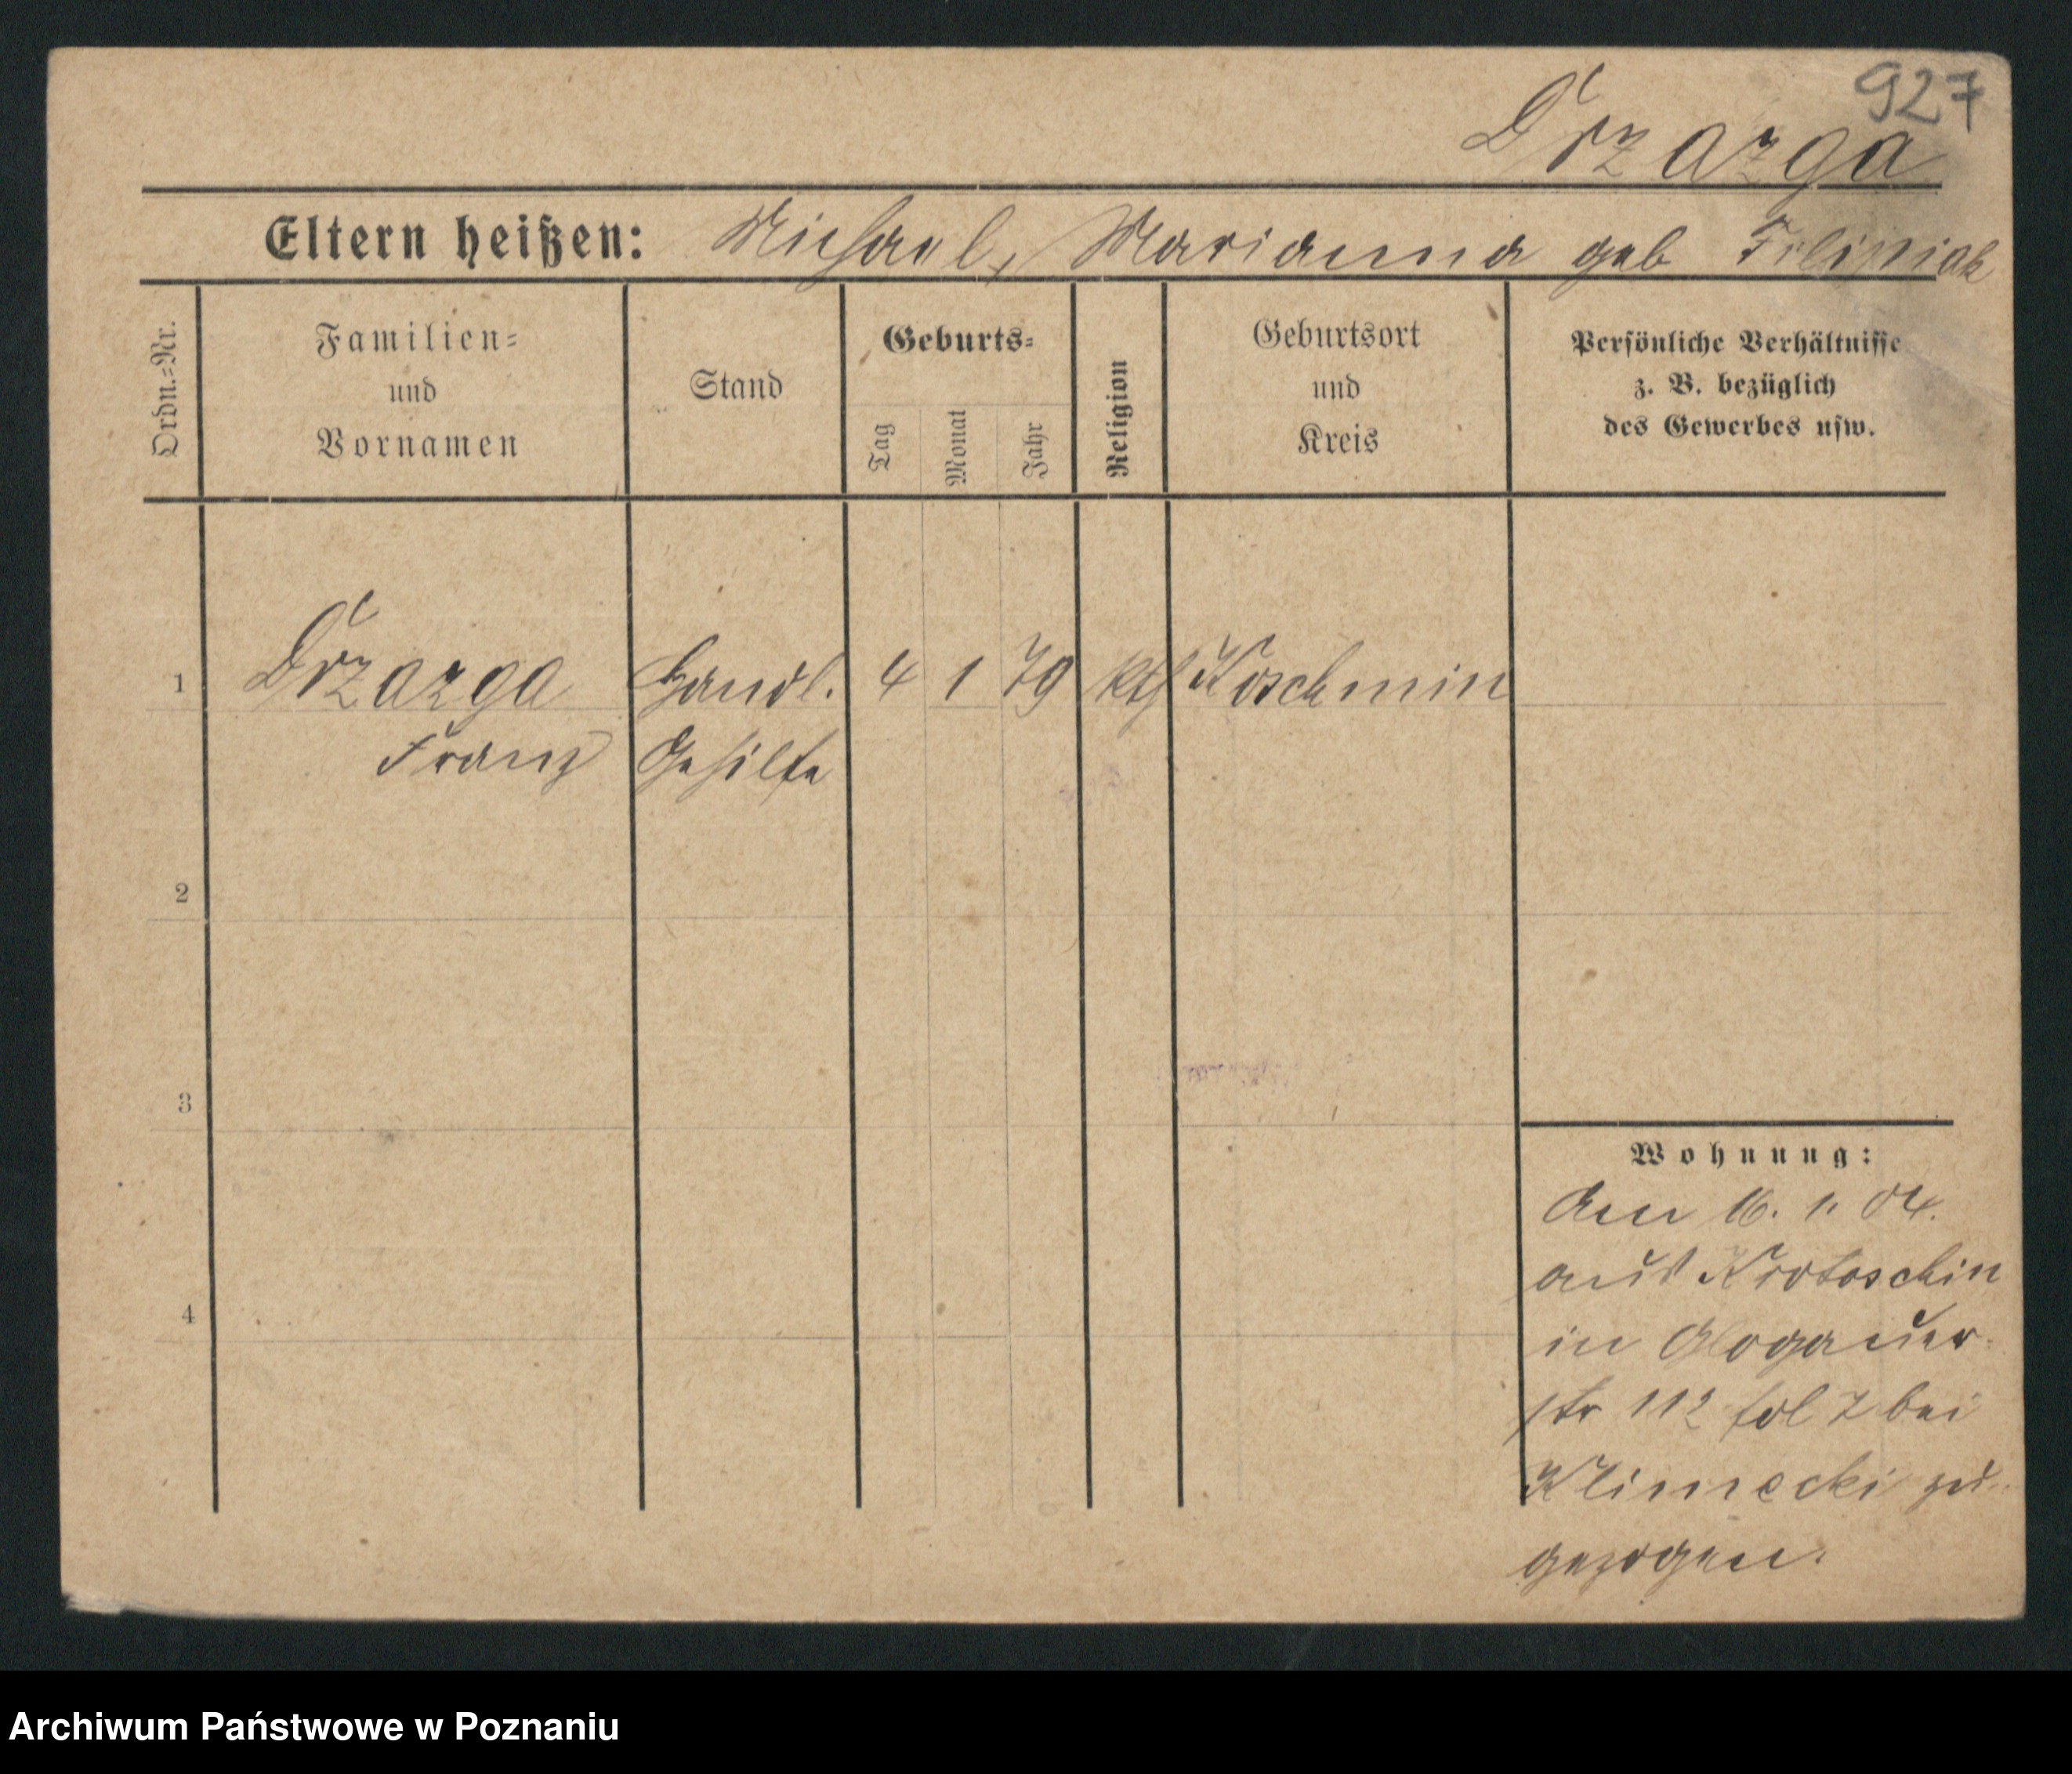 927
Drzazga
Eltern heißen: Michael, Marianna geb Filipiak
Ordn.=Nr.
Familien=
und
Vornamen
Stand
Geburts=
Tag
Monat
Jahr
Religion
Geburtsort
und
Kreis
Persönliche Verhältnisse
z. B. bezüglich
des Gewerbes usw.
1 Drzazga Handl. 4 1 79 kth Koschmin
Franz Gehilfe
2
3
4
Wohnung:
Am 16. 1. 04.
aus Krotoschin
in Glogauer
str 112 bei
Klimecki zu
gezogen.
Archiwum Państwowe w Poznaniu